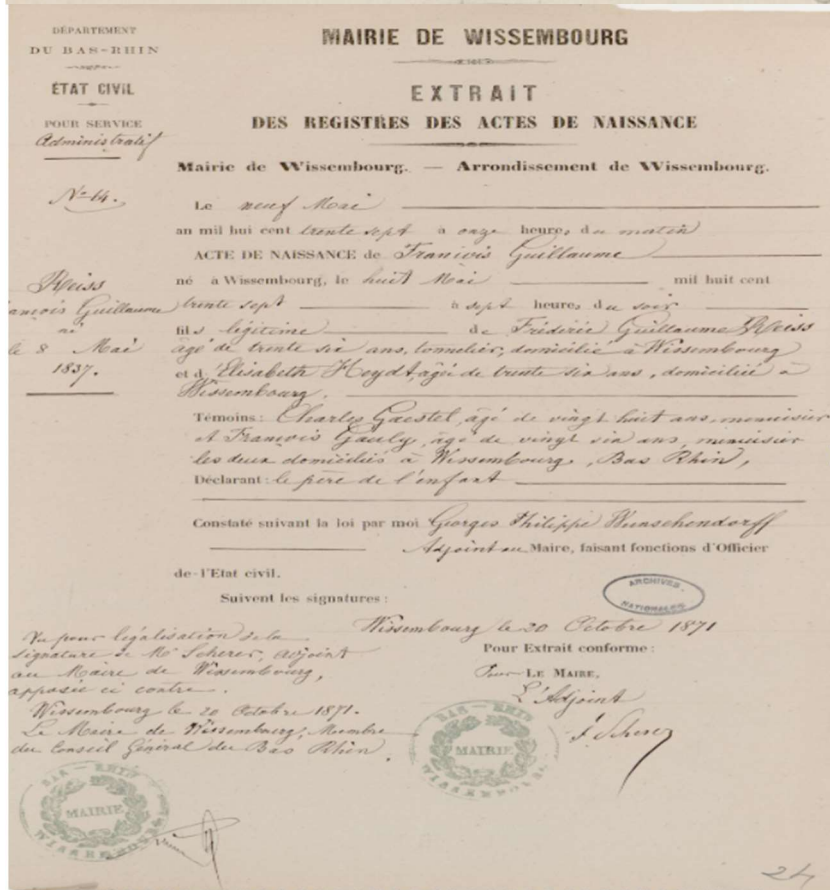 DÉPARTEMENT
DU BAS-RHIN
ÉTAT CIVIL
POUR SERVICE
Administratif
Nº 14.
Reiss
François Guillaume
né
le 8 Mai
1837.
MAIRIE DE WISSEMBOURG
EXTRAIT
DES REGISTRES DES ACTES DE NAISSANCE
Mairie de Wissembourg. — Arrondissement de Wissembourg.
Le neuf Mai
an mil hui cent trente sept à onze heures du matin
ACTE DE NAISSANCE de François Guillaume
né à Wissembourg, le huit Mai mil huit cent
trente sept à sept heures du soir
fils légitime de Fréderic Guillaume Reiss
âgé de trente six ans, tonnelier, domicilié à Wissembourg
et d'Elisabeth Heydt, agée de trente six ans, domiciliée à
Wissembourg.
Témoins : Charles Gaestel, âgé de vingt huit ans, menuisier
et François Gauly, âgé de vingt six ans, menuisier
les deux domiciliés à Wissembourg, Bas Rhin,
Déclarant : le père de l'enfant
Constaté suivant la loi par moi Georges Philippe Wunschendorff
Adjoint au Maire, faisant fonctions d'Officier
de l'Etat civil.
Suivent les signatures :
ARCHIVES
NATIONALES
Wissembourg le 20 Octobre 1871
Pour Extrait conforme :
Pour LE MAIRE,
L'Adjoint
J. Scherer
BAS-RHIN
MAIRIE
WISSEMBOURG
Vu pour légalisation de la
signature de Mr Scherer, adjoint
au Maire de Wissembourg,
apposée ci contre.
Wissembourg le 20 Octobre 1871.
Le Maire de Wissembourg, Membre
du Conseil Général du Bas Rhin
BAS-RHIN
MAIRIE
WISSEMBOURG
24